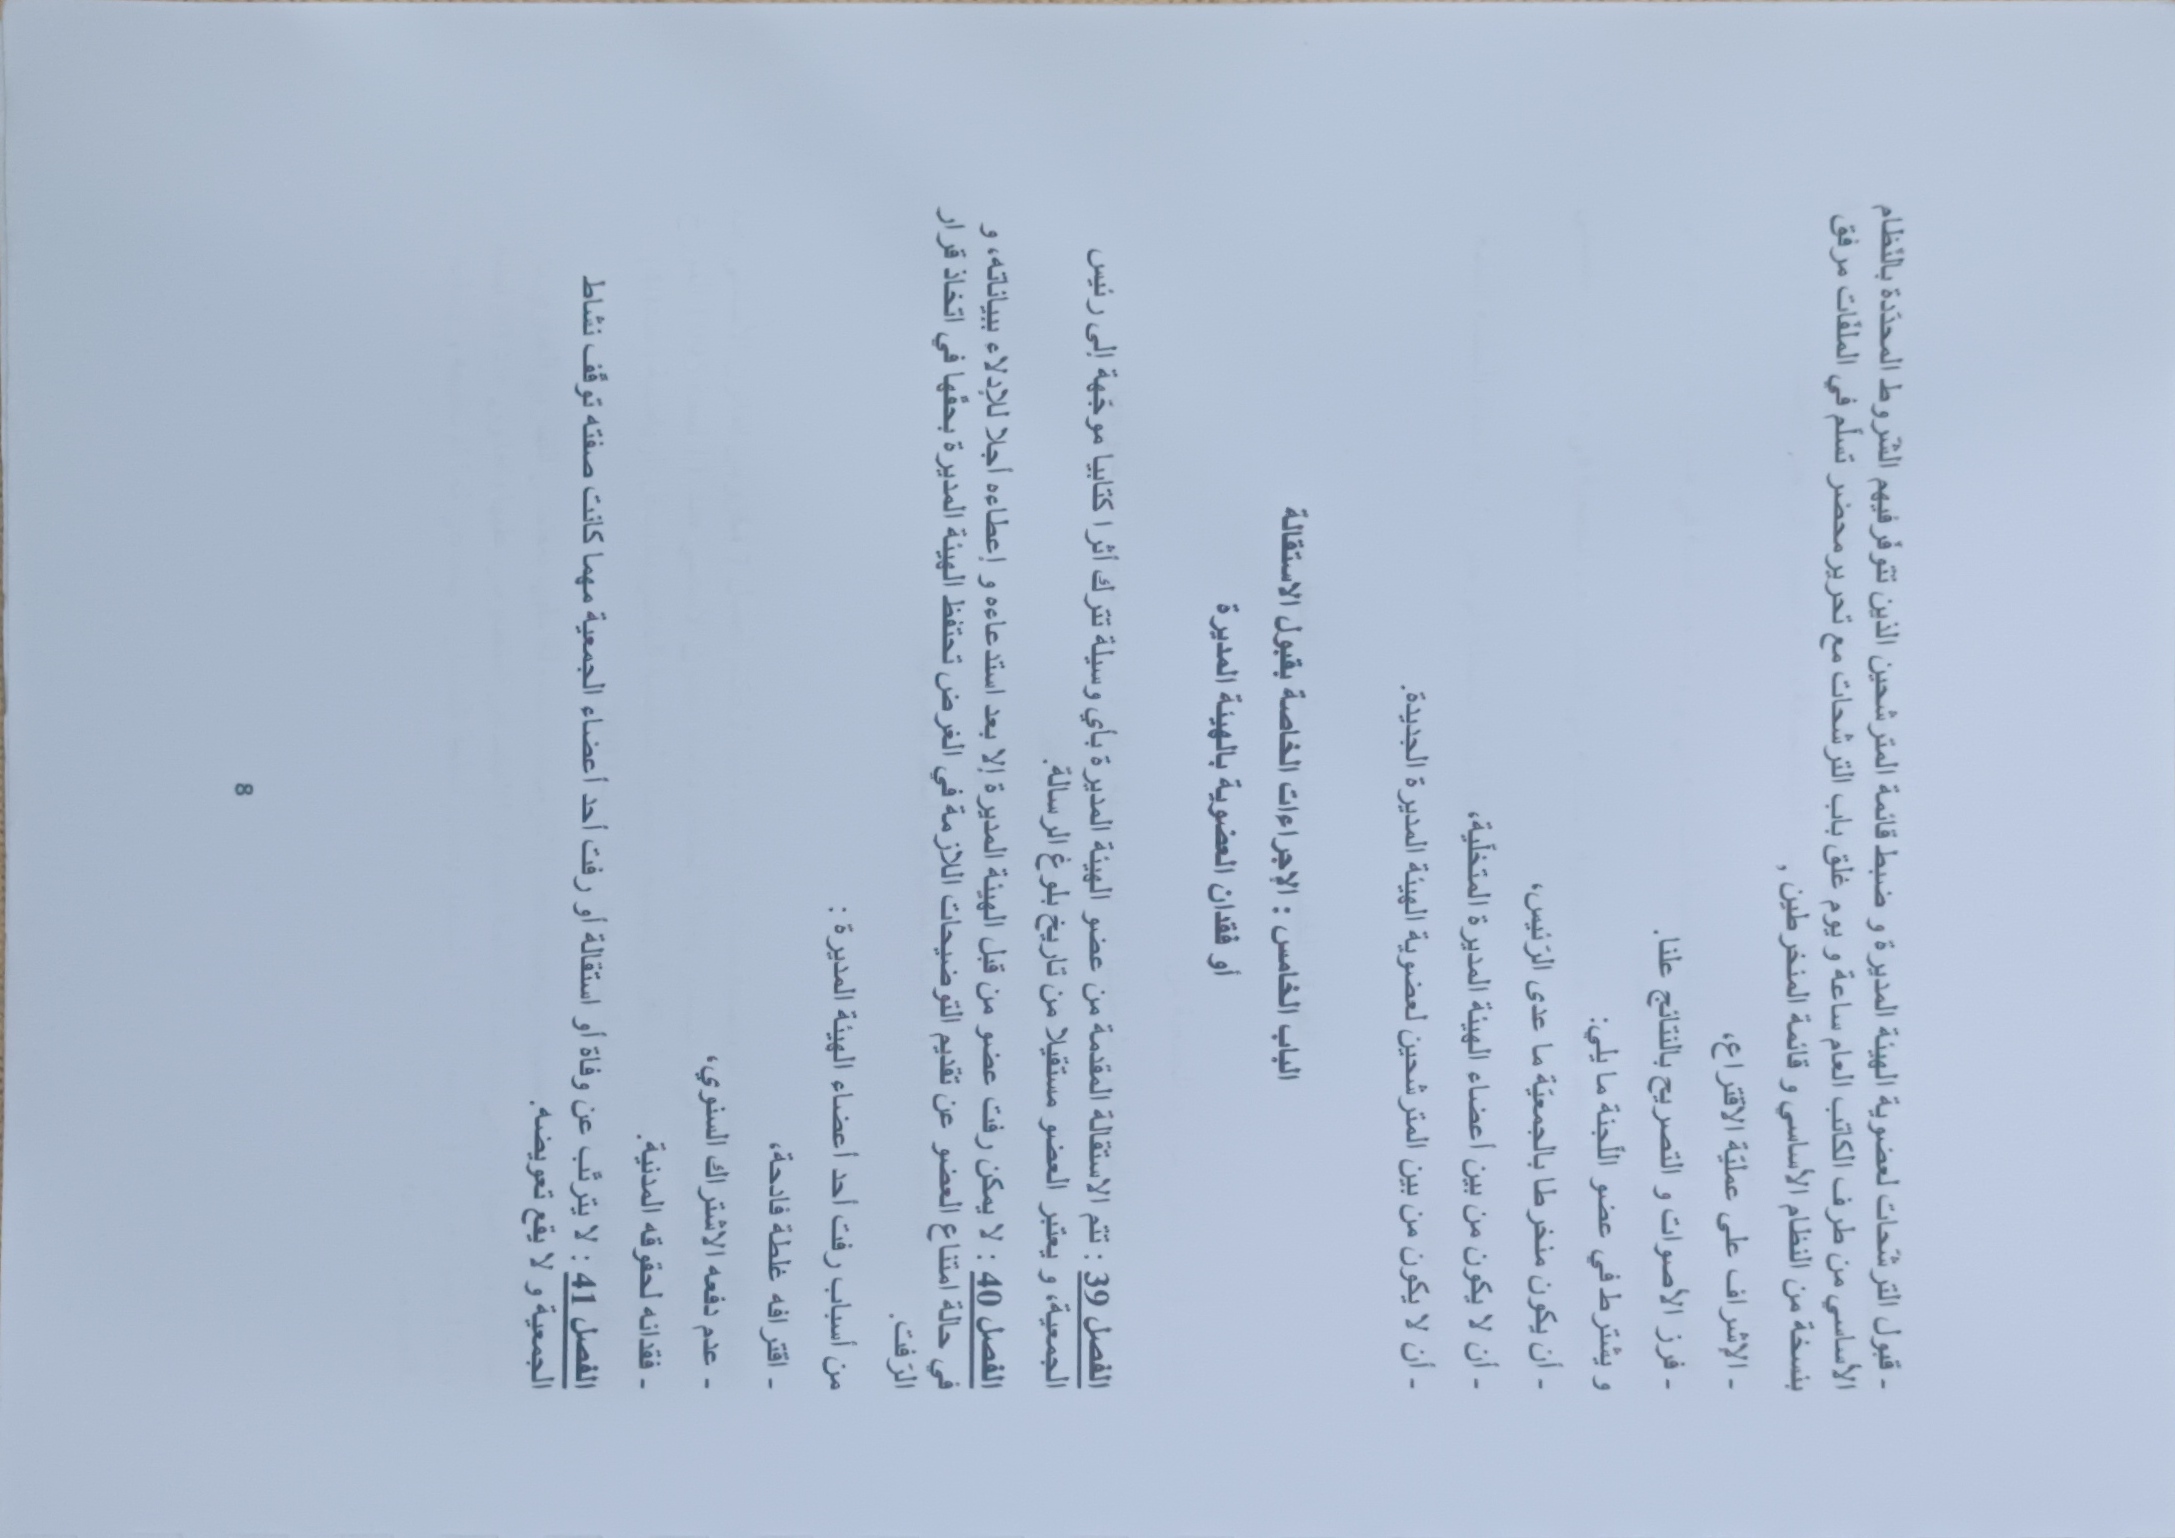 - قبول الترشّحات لعضوية الهيئة المديرة و ضبط قائمة المترشحين الذين تتوفّر فيهم الشّروط المحدّدة بالنّظام
الأساسي من طرف الكاتب العام ساعة و يوم غلق باب الترشحات مع تحرير محضر تسلّم في الملفّات مرفق
بنسخة من النظام الأساسي و قائمة المنخرطين ,
- الإشراف على عمليّة الاقتراع،
- فرز الأصوات و التصريح بالنتائج علنا.
و يشترط في عضو اللّجنة ما يلي:
- أن يكون منخرطا بالجمعيّة ما عدى الرّئيس،
- أن لا يكون من بين أعضاء الهيئة المديرة المتخلّية،
- أن لا يكون من بين المترشحين لعضوية الهيئة المديرة الجديدة.
الباب الخامس : الإجراءات الخاصة بقبول الاستقالة
أو فقدان العضوية بالهيئة المديرة
الفصل 39 : تتم الاستقالة المقدمة من عضو الهيئة المديرة بأي وسيلة تترك أثرا كتابيا موجّهة إلى رئيس
الجمعية، و يعتبر العضو مستقيلا من تاريخ بلوغ الرسالة.
الفصل 40 : لا يمكن رفت عضو من قبل الهيئة المديرة إلا بعد استدعاءه و إعطاءه أجلا للإدلاء ببياناته، و
في حالة امتناع العضو عن تقديم التوضيحات اللازمة في الغرض تحتفظ الهيئة المديرة بحقّها في اتخاذ قرار
الرّفت.
من أسباب رفت أحد أعضاء الهيئة المديرة :
- اقترافه غلطة فادحة،
- عدم دفعه الاشتراك السنوي،
- فقدانه لحقوقه المدنية.
الفصل 41 : لا يترتّب عن وفاة أو استقالة أو رفت أحد أعضاء الجمعية مهما كانت صفته توقّف نشاط
الجمعية و لا يقع تعويضه.
8